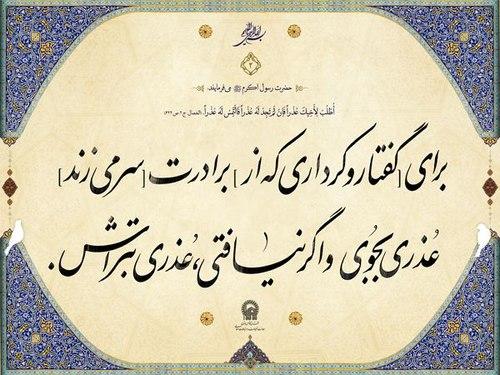 بسم الله الرحمن الرحیم
۲
حضرت رسول اکرم ﷺ می‌فرمایند:
اُطْلُبْ لِأَخِيكَ عُذراً فَإنْ لَمْ تَجِدْ لَهُ عُذراً فَالْتَمِسْ لَهُ عُذراً. (الخصال، ج۲ ص ۶۲۲)
برای [گفتار و کرداری که از] برادرت [سر می زند]
عُذری بجوی و اگر نیافتی، عُذری بتراش.